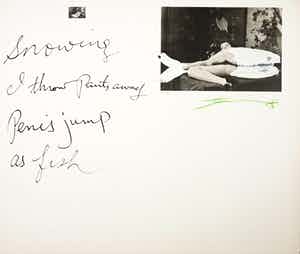 Snowing
I throw Pants away
Penis jump
as fish